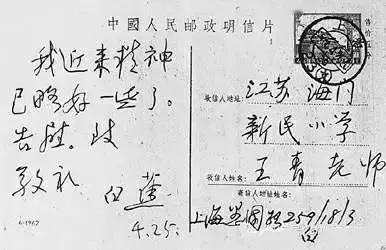 中國人民邮政明信片
我近来精神
已略好一些了。
告慰。此
敬礼
白蕉
4.25.
收信人地址:
江苏海门
新民小学
收信人姓名:
王青老师
寄信人地址姓名:
上海
259/18/3
白
4-1967